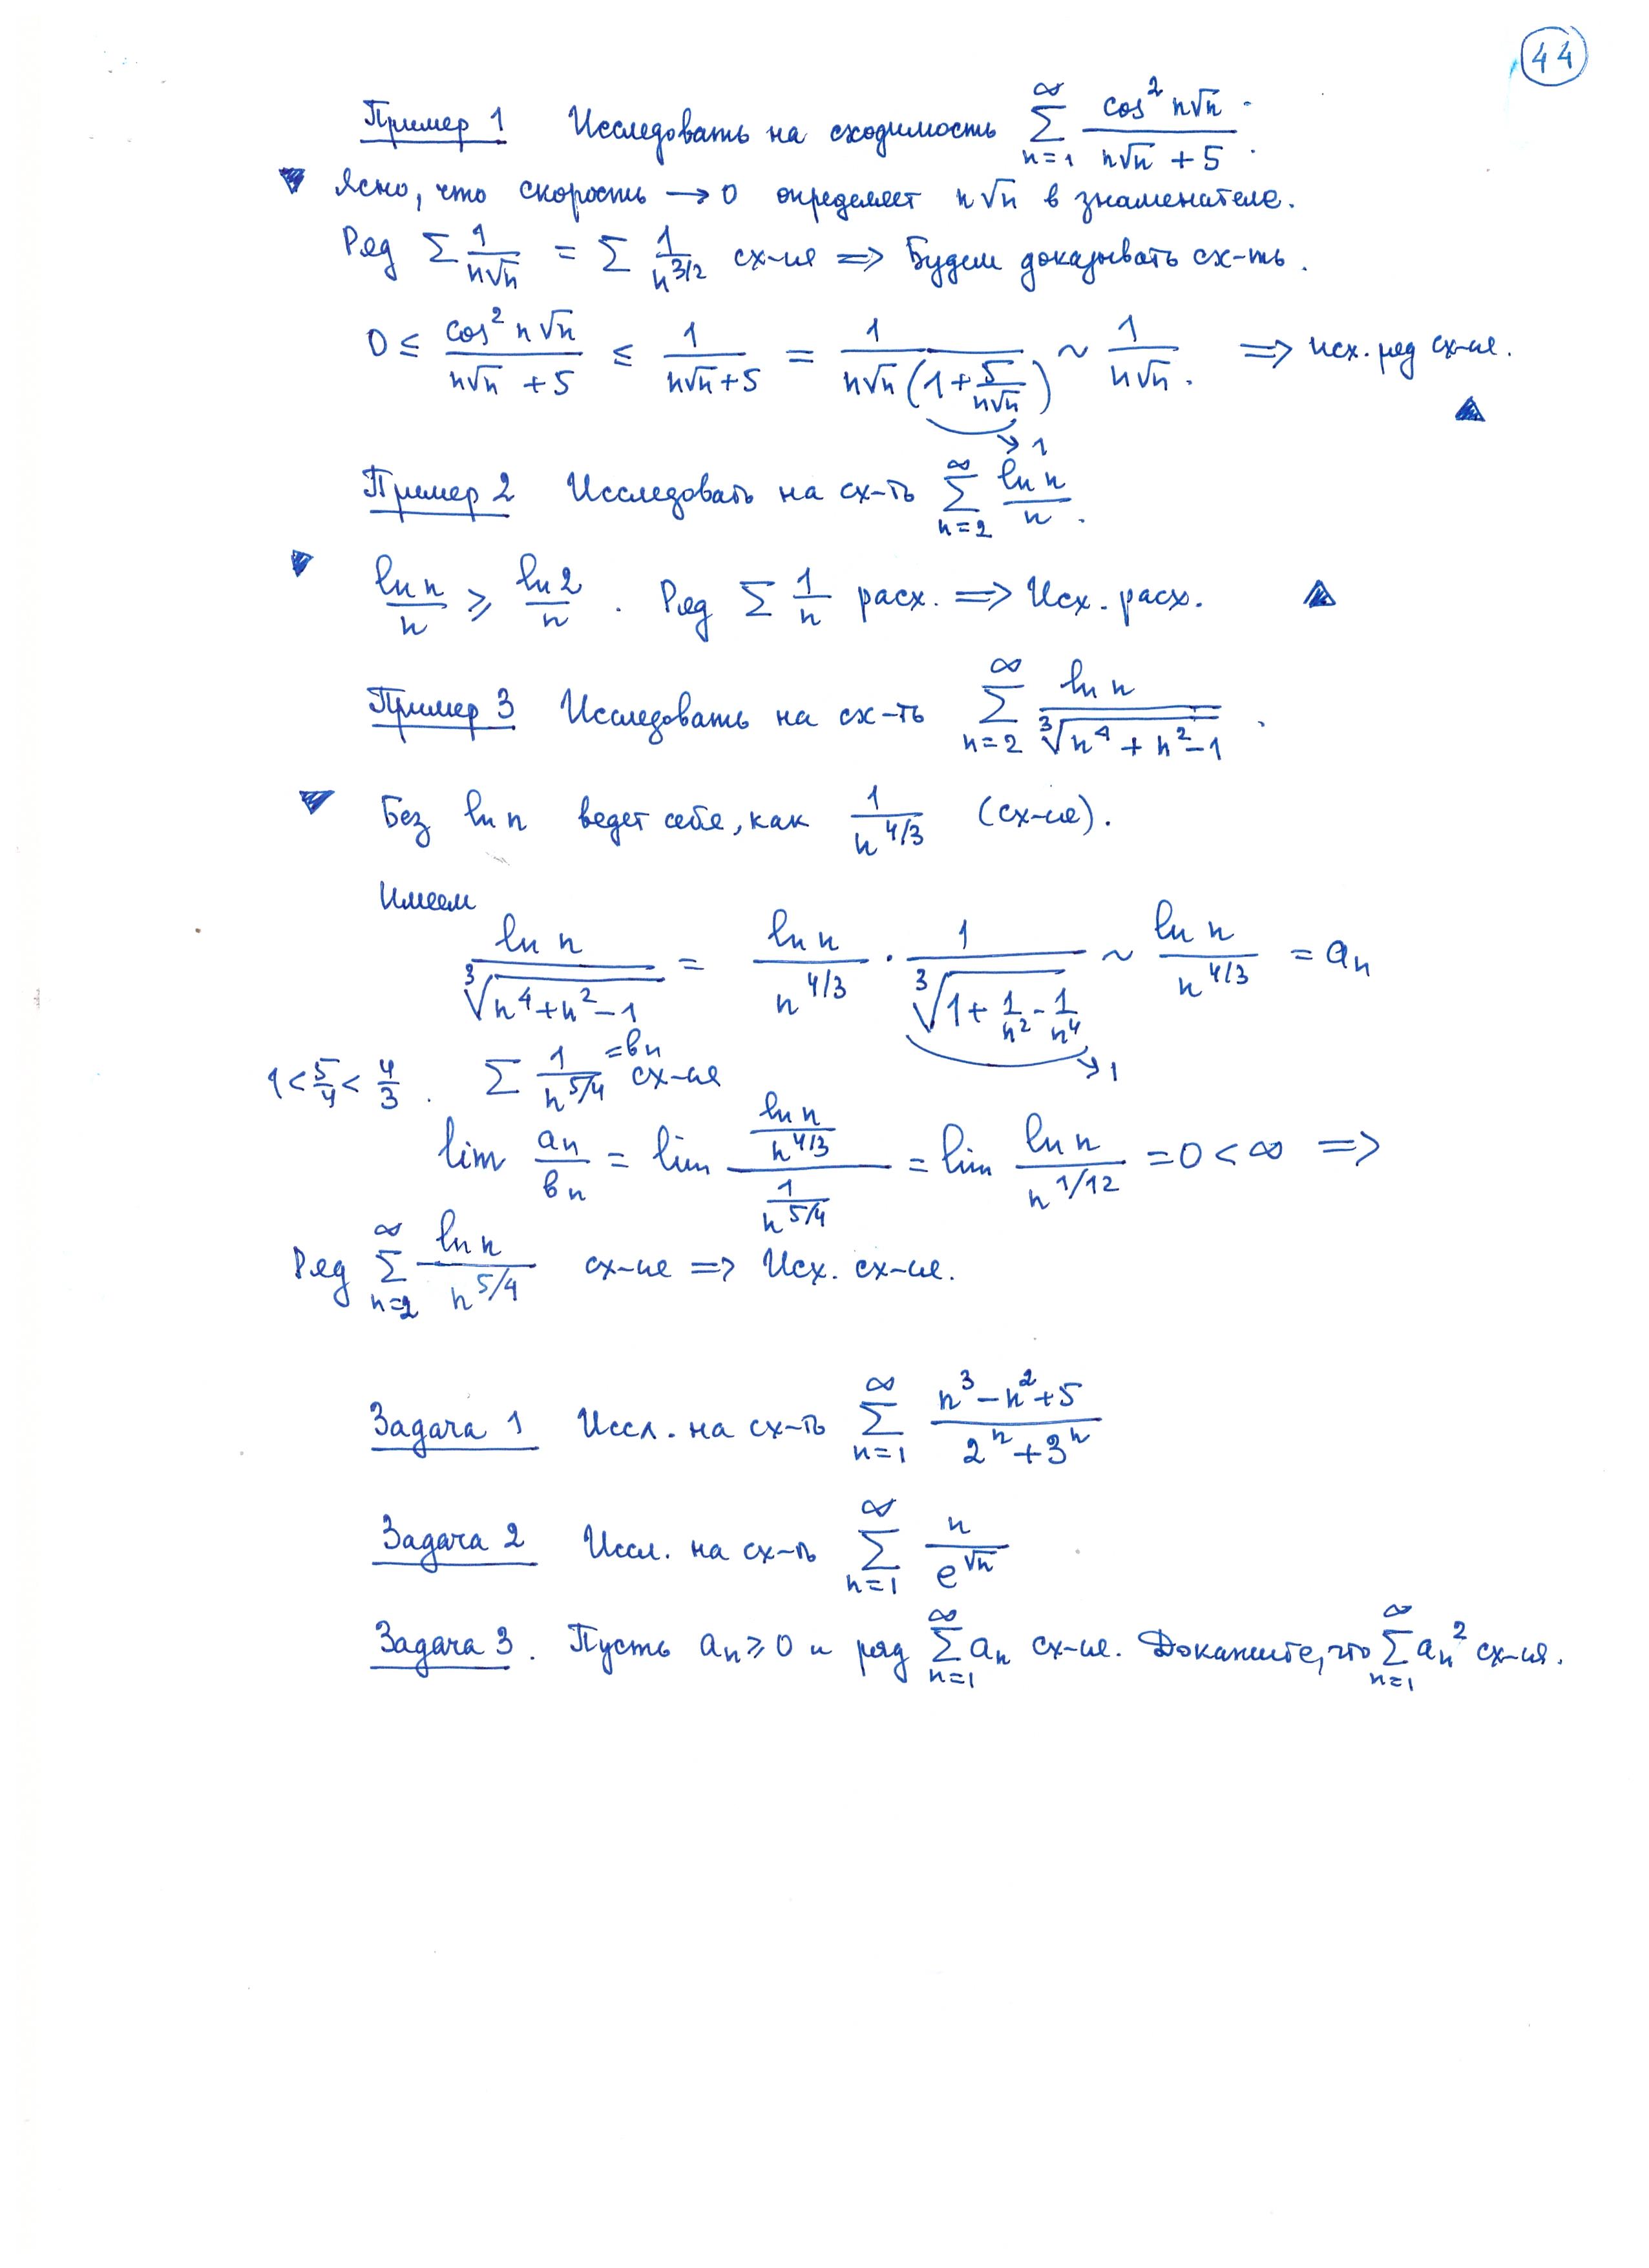 44
Пример 1 Исследовать на сходимость $\sum_{n=1}^{\infty} \frac{\cos^2 n\sqrt{n}}{n\sqrt{n}+5}$.
Ясно, что скорость → 0 определяет $n\sqrt{n}$ в знаменателе.
Ряд $\sum \frac{1}{n\sqrt{n}} = \sum \frac{1}{n^{3/2}}$ сх-ся ⇒ Будем доказывать сх-ть.
$0 \leq \frac{\cos^2 n\sqrt{n}}{n\sqrt{n}+5} \leq \frac{1}{n\sqrt{n}+5} = \frac{1}{n\sqrt{n}\left(1+\frac{5}{n\sqrt{n}}\right)} \sim \frac{1}{n\sqrt{n}}$. ⇒ исх. ряд сх-ся.
→ 1
Пример 2 Исследовать на сх-ть $\sum_{n=2}^{\infty} \frac{\ln n}{n}$.
$\frac{\ln n}{n} \geq \frac{\ln 2}{n}$. Ряд $\sum \frac{1}{n}$ расх. ⇒ Исх. расх.
Пример 3 Исследовать на сх-ть $\sum_{n=2}^{\infty} \frac{\ln n}{\sqrt[3]{n^4+n^2-1}}$.
Без ln n ведет себя, как $\frac{1}{n^{4/3}}$ (сх-ся).
Имеем
$\frac{\ln n}{\sqrt[3]{n^4+n^2-1}} = \frac{\ln n}{n^{4/3}} \cdot \frac{1}{\sqrt[3]{1+\frac{1}{n^2}-\frac{1}{n^4}}} \sim \frac{\ln n}{n^{4/3}} = a_n$
→ 1
$1 < \frac{5}{4} < \frac{4}{3}$. $\sum \frac{1}{n^{5/4}}$ $= b_n$ сх-ся
$\lim \frac{a_n}{b_n} = \lim \frac{\frac{\ln n}{n^{4/3}}}{\frac{1}{n^{5/4}}} = \lim \frac{\ln n}{n^{1/12}} = 0 < \infty$ ⇒
Ряд $\sum_{n=2}^{\infty} \frac{\ln n}{n^{5/4}}$ сх-ся ⇒ Исх. сх-ся.
Задача 1 Иссл. на сх-ть $\sum_{n=1}^{\infty} \frac{n^3-n^2+5}{2^n+3^n}$
Задача 2 Иссл. на сх-ть $\sum_{n=1}^{\infty} \frac{n}{e^{\sqrt{n}}}$
Задача 3. Пусть $a_n \geq 0$ и ряд $\sum_{n=1}^{\infty} a_n$ сх-ся. Докажите, что $\sum_{n=1}^{\infty} a_n^2$ сх-ся.